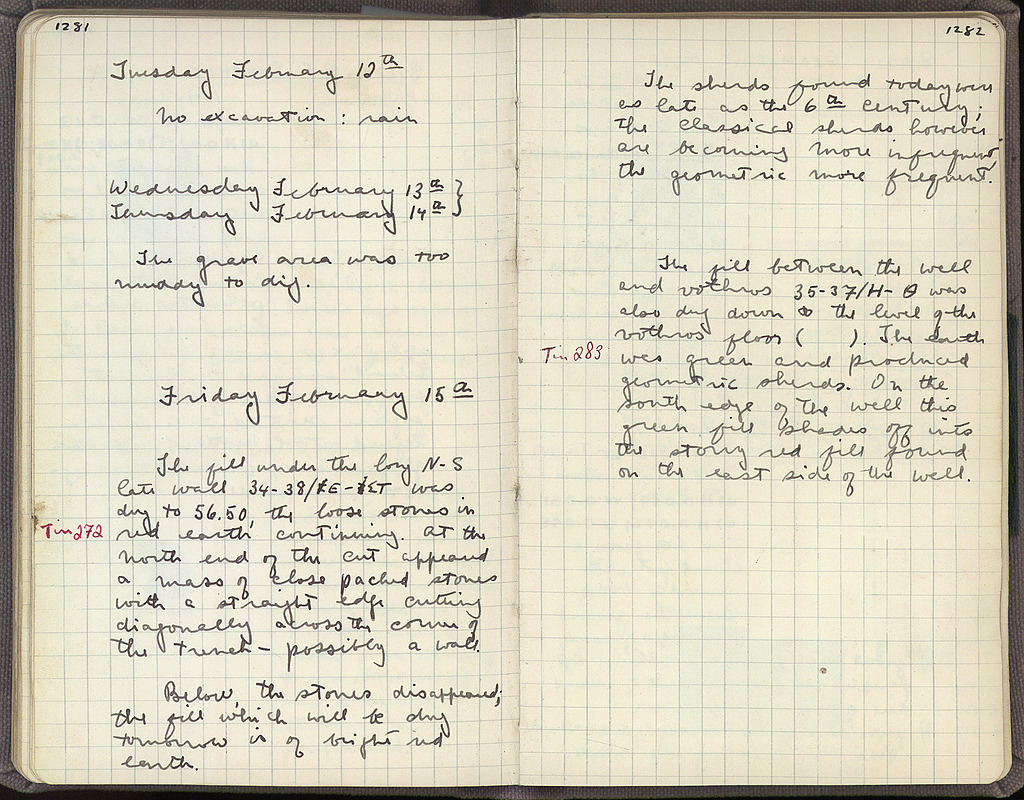 1281
Tuesday February 12th
No excavation : rain
Wednesday February 13th }
Thursday February 14th }
The grave area was too
muddy to dig.
Friday February 15th
The fill under the long N-S
late wall 34-38/ΙΕ-ΙΣΤ was
dug to 56.50, the loose stones in
Tin 272 red earth continuing. At the
north end of the cut appeared
a mass of close packed stones
with a straight edge cutting
diagonally across the corner of
the trench - possibly a wall.
Below, the stones disappeared;
the fill which will be dug
tomorrow is of bright red
earth.
1282
The sherds found today were
as late as the 6th century;
the classical sherds however
are becoming more infrequent,
the geometric more frequent.
The fill between the well
and vothros 35-37/Η-Θ was
also dug down to the level of the
vothros floor (     ). The earth
Tin 283 was green and produced
geometric sherds. On the
south edge of the well this
green fill shades off into
the stony red fill found
on the east side of the well.